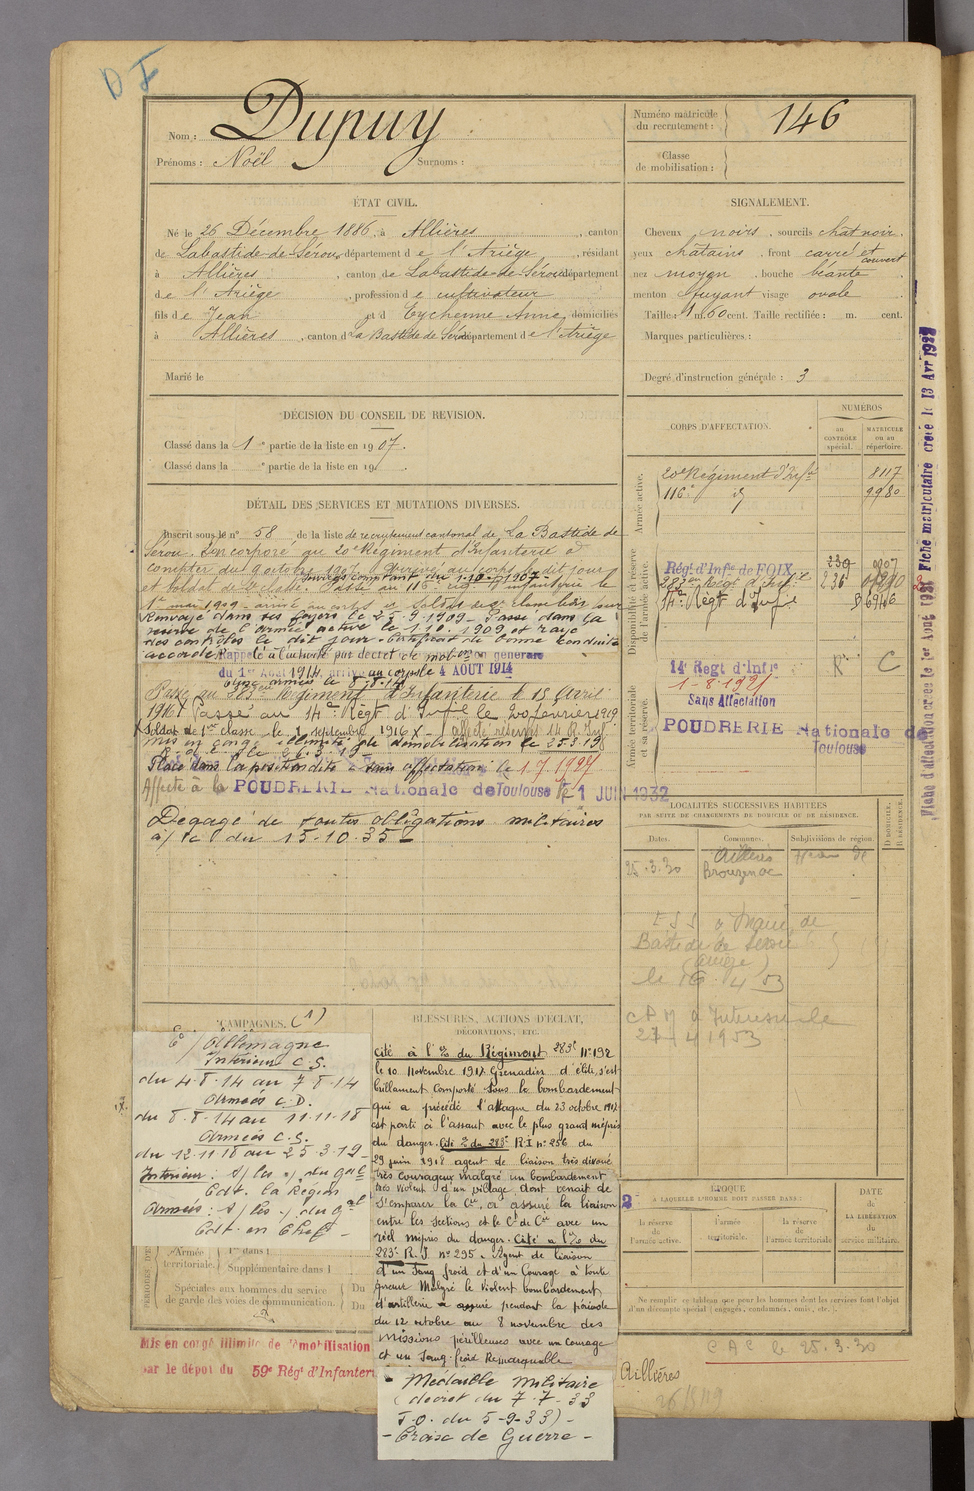 D I
Nom : Dupuy
Prénoms : Noël Surnoms :
Numéro matricule du recrutement : 146
Classe de mobilisation :
ÉTAT CIVIL.
Né le 26 Décembre 1886, à Allières, canton
de Labastide-de-Sérou, département de l'Ariège, résidant
à Allières, canton de Labastide-de-Sérou département
de l'Ariège, profession de cultivateur
fils de Jean et d Eychenne Anne, domiciliés
à Allières, canton d La Bastide de Sérou département de l'Ariège
Marié le
SIGNALEMENT.
Cheveux noirs, sourcils chat noir,
yeux châtains, front carré et couvert
nez moyen, bouche béante,
menton fuyant visage ovale
Taille : 1 m. 60 cent. Taille rectifiée : m. cent.
Marques particulières :
Degré d'instruction générale : 3
DÉCISION DU CONSEIL DE REVISION.
Classé dans la 1re partie de la liste en 1907.
Classé dans la e partie de la liste en 19 .
DÉTAIL DES SERVICES ET MUTATIONS DIVERSES.
Inscrit sous le n° 58 de la liste de recrutement cantonal de La Bastide de
Sérou. Incorporé au 20e Régiment d'Infanterie à
compter du 9 octobre 1907. Arrivé au corps le dit jour
Services comptant du 1-10-1907
et soldat de 2e classe. Passé au 116e d'infanterie le
1er mai 1909 - arrivé au corps et soldat de 2e classe le dit jour
Renvoyé dans ses foyers le 25-9-1909 - Passé dans la
réserve de l'Armée active le 1-10-1909 et rayé
des contrôles le dit jour. Certificat de bonne conduite
accordé. Rappelé à l'activité par décret de mobon générale
du 1er Août 1914, arrivé au corps le 4 AOUT 1914
aux armées le 8.8.14
Passé au 283eme Régiment d'Infanterie le 15 Avril
1916 X Passé au 14e Régt d'Infie le 20 février 1919
X Soldat de 1re classe le 3 septembre 1916 X - affecté réserves 14 R. Inf.
mis en congé illimité de démobilisation le 25.3.19
Placé dans la position dite « sans affectation » le 1.7.1927
Affecté à la POUDRERIE Nationale de Toulouse le 1 JUIN 1932
Dégagé de toutes obligations militaires
à/c du 15-10-35
CORPS D'AFFECTATION.
NUMÉROS
AU CONTRÔLE spécial.
MATRICULE ou au répertoire.
Armée active.
20e Régiment d'Infie 8117
116e id 9980
Disponibilité et réserve de l'armée active.
Régt d'Infie de FOIX 239 0907
283em Régt d'Infie 236
14e Régt d'Infie 6946
Armée territoriale et sa réserve.
14e Regt d'Infie R C
1-8-1921
Sans Affectation
POUDRERIE Nationale de
Toulouse
Fiche d'affectation créée le 1er Août 1931 Fiche matriculaire créée le 13 Avr 1932
LOCALITÉS SUCCESSIVES HABITÉES
PAR SUITE DE CHANGEMENTS DE DOMICILE OU DE RÉSIDENCE.
Dates. Communes. Subdivisions de région. D. DOMICILE. R. RÉSIDENCE.
25.3.30 Aillères
Brouzenac
ESS à Mairie de
Bastide de Sérou
(Ariège)
le 16.4.53
CPM à Intéressé le
27 4 1953
CAMPAGNES. (1)
Ce / Allemagne
Intérieur C.S.
du 4.8.14 au 7.8.14
Armées C.D.
du 8.8.14 au 11.11.18
Armées C.S.
du 12.11.18 au 25.3.19
Intérieur : s/ les o/ du Gal
Cdt. la Région
Armées : s/ les o/ du Gal
Cdt. en Chef -
PÉRIODES D'
Armée territoriale.
1re dans l
Supplémentaire dans l
Spéciales aux hommes du service de garde des voies de communication.
Du
Du
Mis en congé illimité de démobilisation
par le dépôt du 59e Régt d'Infanterie
BLESSURES, ACTIONS D'ÉCLAT,
DÉCORATIONS, ETC.
Cité à l'O du Régiment 283e N° 192
le 10 novembre 1917 Grenadier d'élite, s'est
brillament comporté sous le bombardement
qui a précédé l'attaque du 23 octobre 1917
est parti à l'assaut avec le plus grand mépris
du danger. Cité O du 283e R.I n° 256 du
29 juin 1918 agent de liaison très dévoué
très courageux malgré un bombardement
très violent d'un village dont venait de
s'emparer la Cie, a assuré la liaison
entre les sections et le Ct de Cie avec un
réel mépris du danger. Cité à l'O du
283e R.I. n° 295. Agent de liaison
d'un Sang froid et d'un Courage à toute
épreuve Malgré le Violent bombardement
d'artillerie a assuré pendant la période
du 12 octobre au 8 novembre des
missions périlleuses avec un courage
et un Sang-froid Remarquable
- Médaille Militaire
(décret du 7-7-33
J.O. du 5-9-33) -
- Croix de Guerre -
2
ÉPOQUE
À LAQUELLE L'HOMME DOIT PASSER DANS :
la réserve de l'armée active.
l'armée territoriale.
la réserve de l'armée territoriale
DATE DE LA LIBÉRATION du service militaire.
Ne remplir ce tableau que pour les hommes dont les services font l'objet
d'un décompte spécial (engagés, condamnés, omis, etc.).
CAC le 25.3.30
Aillières
26/8/19